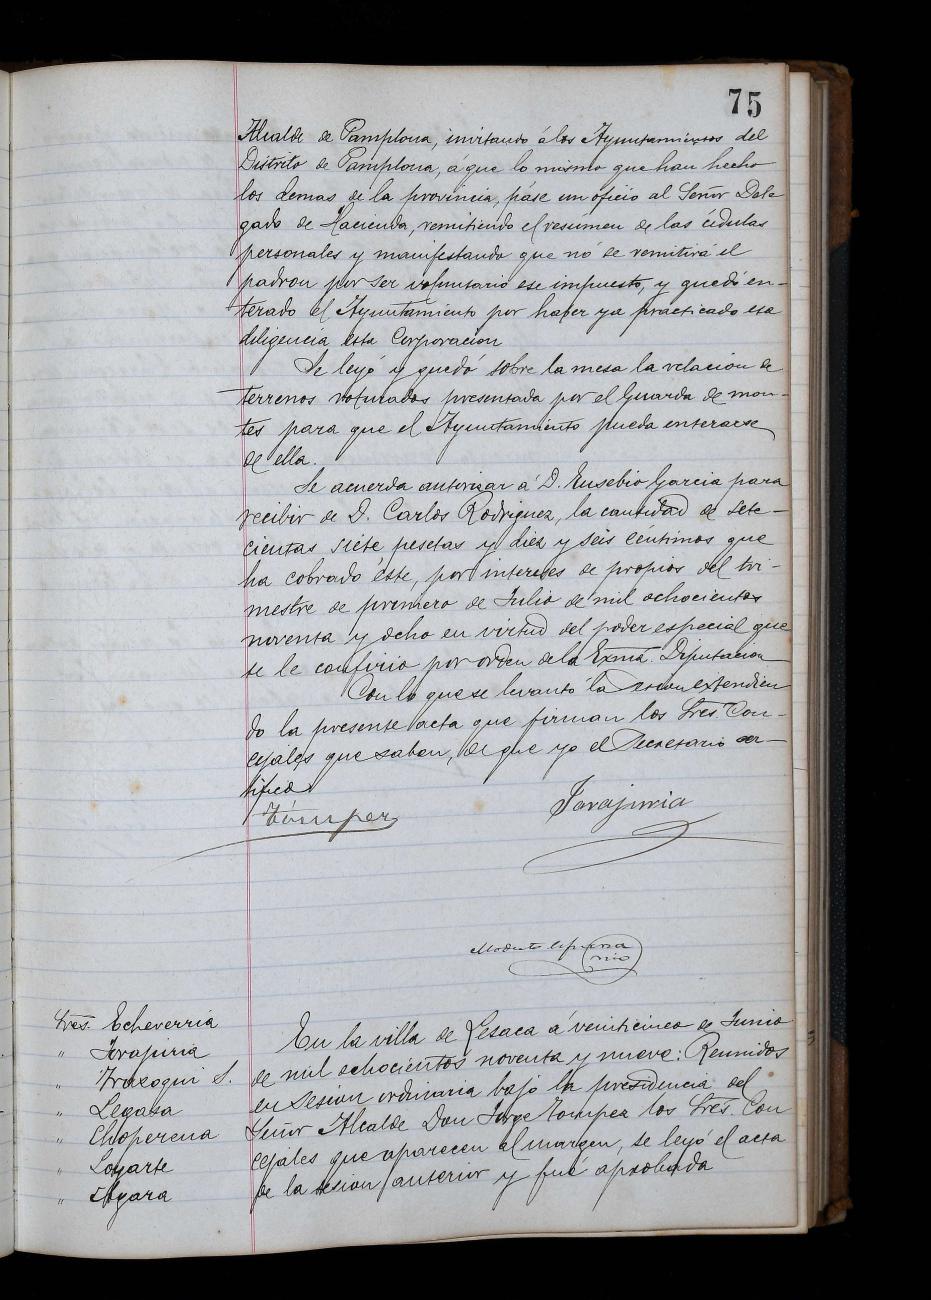 75
Alcalde de Pamplona, invitando á los Ayuntamientos del
Distrito de Pamplona, á que lo mismo que han hecho
los demas de la provincia, pase un oficio al Señor Dele-
gado de Hacienda, remitiendo el resúmen de las cédulas
personales y manifestando que nó se remitirá el
padron por ser voluntario ese impuesto, y quedó en-
terado el Ayuntamiento por haber ya practicado esa
diligencia esta Corporacion
Se leyó y quedó sobre la mesa la relacion de
terrenos roturados presentada por el Guarda de mon-
tes para que el Ayuntamiento pueda enterarse
de ella.
Se acuerda autorizar á D. Eusebio Garcia para
recibir de D. Carlos Rodriguez, la cantidad de sete-
cientas siete pesetas y diez y seis céntimos que
ha cobrado éste, por intereses de propios del tri-
mestre de primero de Julio de mil ochocientos
noventa y ocho en virtud del poder especial que
se le confirio por orden de la Exma. Diputacion
Con lo que se levantó la sesion extendien
do la presente acta que firman los Sres. Con-
cejales que saben, de que yo el Secretario cer-
tifico
Tómper
Modesto
Sres. Echeverria
" 
" 
" Legasa
" Choperena
" Loyarte
" 
En la villa de Lesaca á veinticinco de Junio
de mil ochocientos noventa y nueve: Reunidos
en sesion ordinaria bajo la presidencia del
Señor Alcalde Don Jorge Tomper los Sres. Con
cejales que aparecen al margen, se leyó el acta
de la sesion anterior y fué aprobada